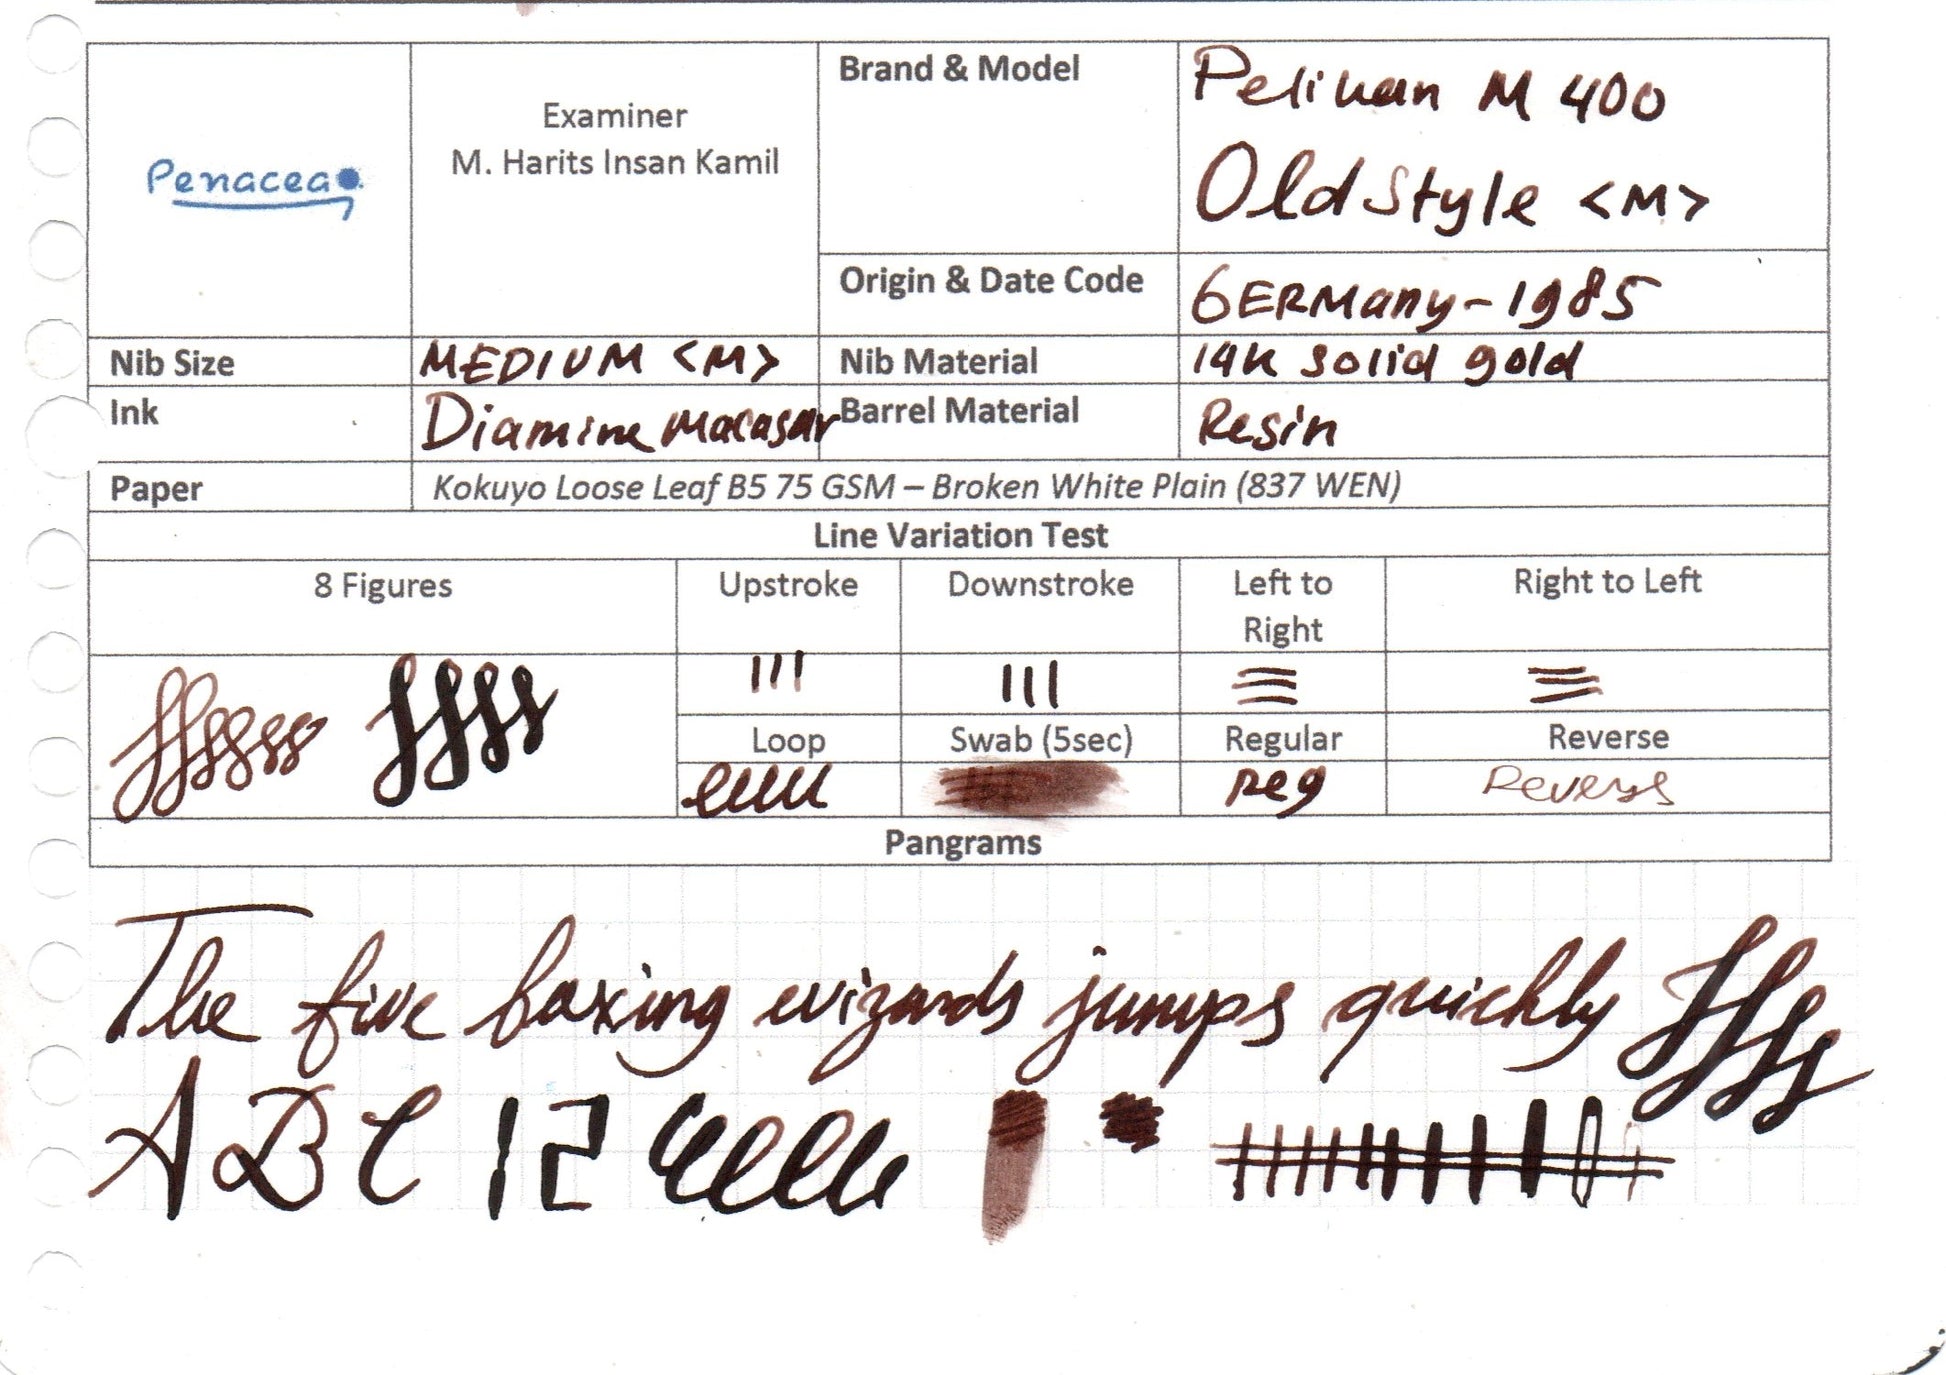 Penacea
Examiner
M. Harits Insan Kamil
Brand & Model
Pelikan M 400
Old Style <M>
Origin & Date Code
GERMany - 1985
Nib Size
MEDIUM <M>
Nib Material
14K solid gold
Ink
Diamine Macasar
Barrel Material
Resin
Paper
Kokuyo Loose Leaf B5 75 GSM – Broken White Plain (837 WEN)
Line Variation Test
8 Figures
Upstroke
Downstroke
Left to
Right
Right to Left
Loop
Swab (5sec)
Regular
Reverse
reg
Reverse
Pangrams
The five boxing wizards jumps quickly
A B C 12